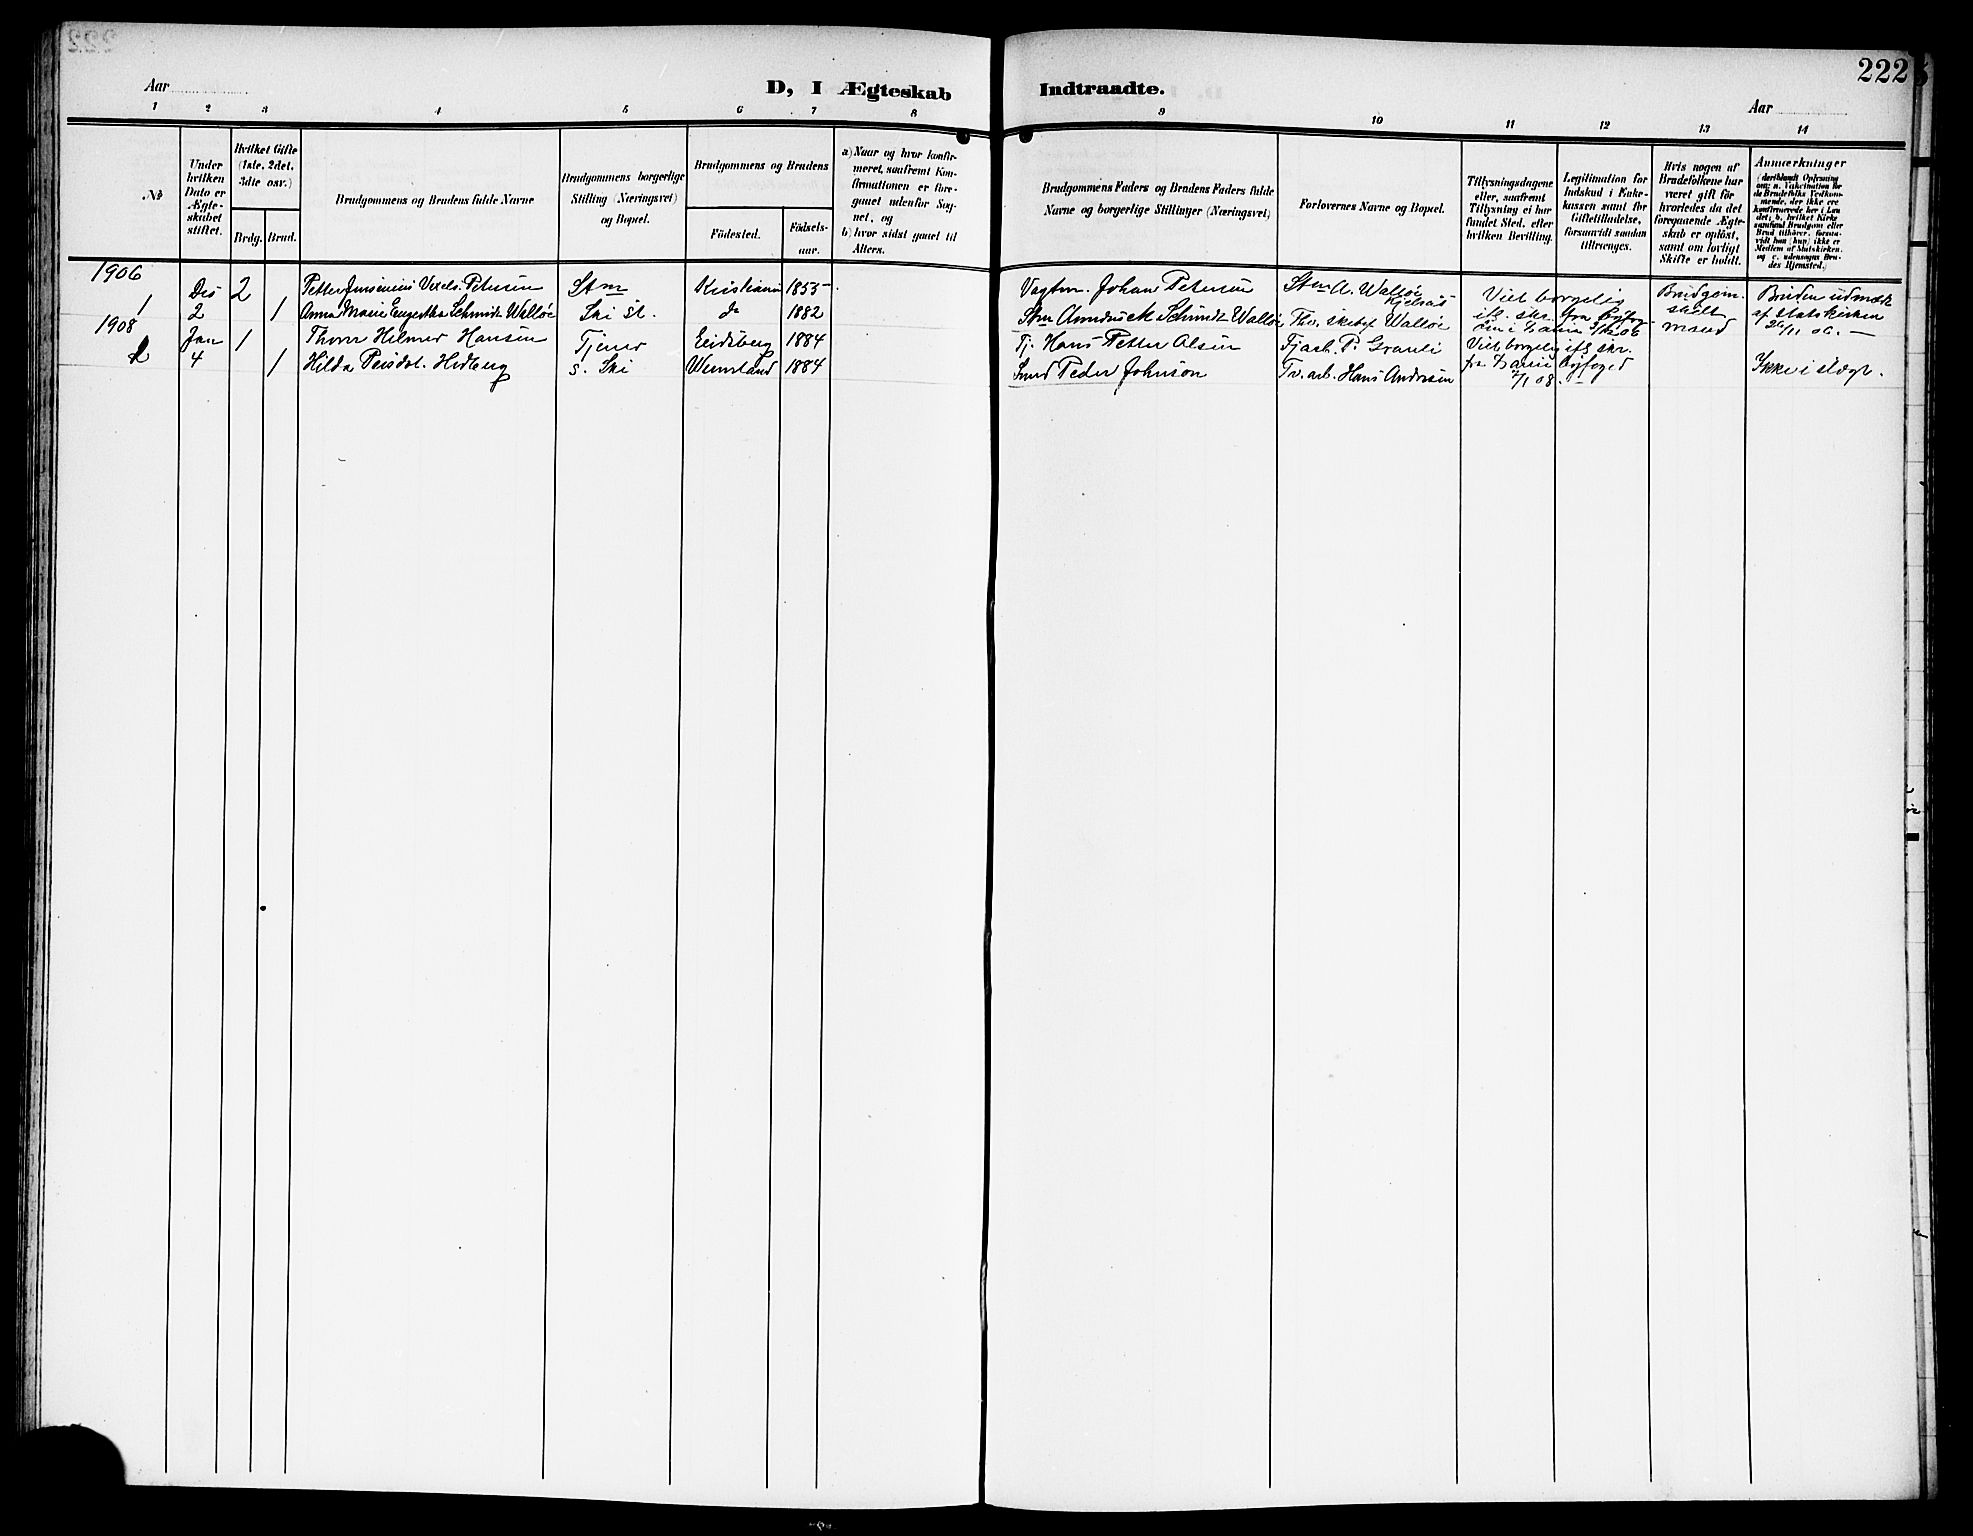 222
Aar
D, I Ægteskab Indtraadte.
Aar
1 2 3 4 5 6 7 8 9 10 11 12 13 14
№
Under hvilken Dato er Ægteskabet stiftet.
Hvilket Gifte (1ste, 2det, 3die osv.)
Brdg. Brud.
Brudgommens og Brudens fulde Navne
Brudgommens borgerlige Stilling (Næringsvei) og Bopæl.
Brudgommens og Brudens
Fødested. Fødselsaar.
a) Naar og hvor konfirmeret, saafremt Konfirmationen er foregaaet udenfor Sognet, og
b) hvor sidst gaaet til Alters.
Brudgommens Faders og Brudens Faders fulde Navne og borgerlige Stillinger (Næringsvei)
Forlovernes Navne og Bopæl.
Tillysningsdagene eller, saafremt Tillysning ei har fundet Sted, efter hvilken Bevilling.
Legitimation for Indskud i Enkekassen samt for Giftetilladelse, forsaavidt saadan tiltrænges.
Hvis nogen af Brudefolkene har været gift før hvorledes da det foregaaende Ægteskab er opløst, samt om lovligt Skifte er holdt.
Anmærkninger
1906
1 Des 2 2 Petter Vexels Petersen Stm Kristiania 1853
1 Anna Marie Schmidt Walløe Ski St. do 1882
Vagtm. Johan Petersen Stm A. Walløe
Schmidt Walløe Walløe
Viet borgelig
skr. fra Byfog- 3/12 06
Brudgom. skilt mand
Bruden udmek af statskirken 26/11 06. —
1908
2 Jan 4 1 Thorvr Hilmer Hansen Tjener Eidsberg 1884
1 Hilda Hedberg s. Ski Wermland 1884
Tj. Hans Petter Olsen Fjarb. P. Granli
Smed Peder Johnson Tv. arb. Hans Andresen
Viet borgelig ifl. skr. fra Byfoged 2/1 08.
Ikke i slægt.